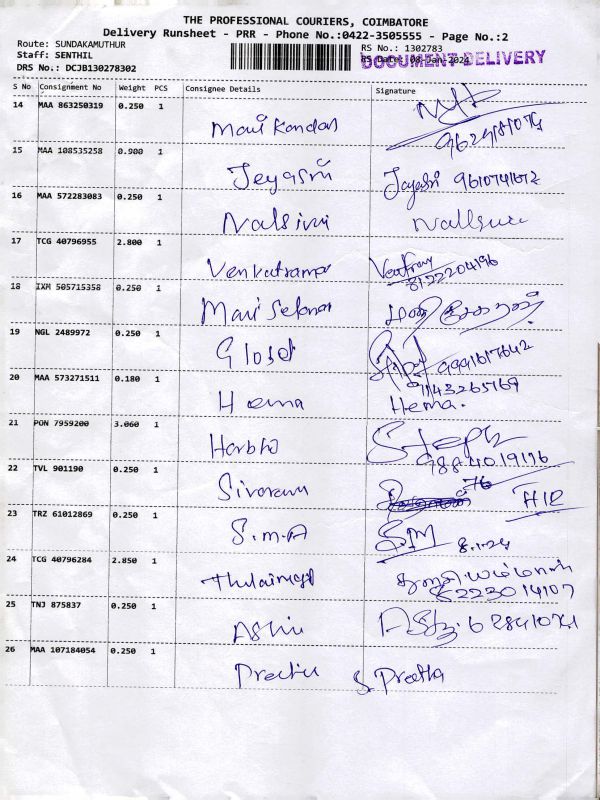 THE PROFESSIONAL COURIERS, COIMBATORE
Delivery Runsheet - PRR - Phone No.:0422-3505555 - Page No.:2
Route: SUNDAKAMUTHUR
Staff: SENTHIL
DRS No.: DCJB130278302
RS No.: 1302783
RS Date: 08-Jan-2024
DOCUMENT DELIVERY
S No Consignment No Weight PCS Consignee Details Signature
14 MAA 863250319 0.250 1 Mani Kandan
15 MAA 108535258 0.900 1 Jeyasri Jayasri
16 MAA 572283083 0.250 1
17 TCG 40796955 2.800 1 Venkatraman
8122204196
18 IXM 505715358 0.250 1
19 NGL 2489972 0.250 1 9991617642
20 MAA 573271511 0.180 1 Hema 9143265769
Hema.
21 PON 7959200 3.060 1
9884019176
22 TVL 901190 0.250 1 Sivaram
23 TRZ 61012869 0.250 1 S.M.A 8.1.24
24 TCG 40796284 2.850 1
25 TNJ 875837 0.250 1
26 MAA 107184054 0.250 1 S. Preetha